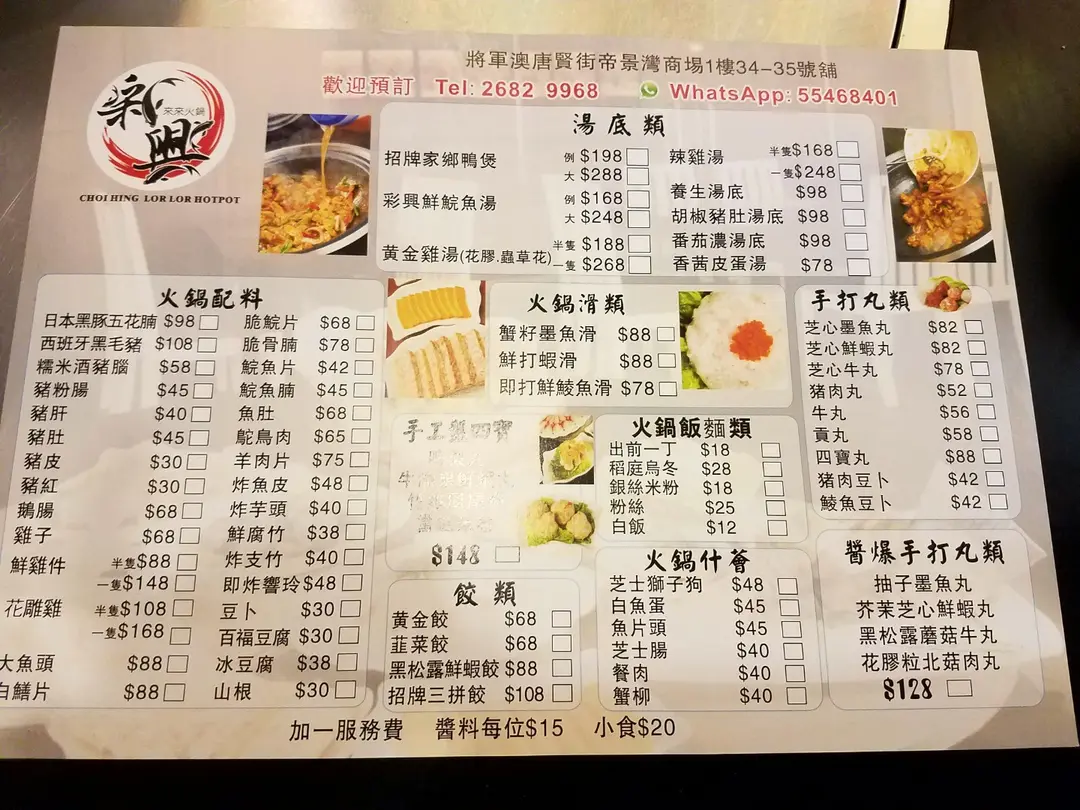 將軍澳唐賢街帝景灣商場1樓34-35號舖
歡迎預訂 Tel: 2682 9968 WhatsApp: 55468401
彩興
來來火鍋
CHOI HING LOR LOR HOTPOT
湯底類
招牌家鄉鴨煲 例 $198
大 $288
彩興鮮鯇魚湯 例 $168
大 $248
黃金雞湯(花膠.蟲草花) 半隻 $188
一隻 $268
辣雞湯 半隻 $168
一隻 $248
養生湯底 $98
胡椒豬肚湯底 $98
番茄濃湯底 $98
香茜皮蛋湯 $78
火鍋配料
日本黑豚五花腩 $98
西班牙黑毛豬 $108
糯米酒豬腦 $58
豬粉腸 $45
豬肝 $40
豬肚 $45
豬皮 $30
豬紅 $30
鵝腸 $68
雞子 $68
鮮雞件 半隻 $88
一隻 $148
花雕雞 半隻 $108
一隻 $168
大魚頭 $88
白鱔片 $88
脆鯇片 $68
脆骨腩 $78
鯇魚片 $42
鯇魚腩 $45
魚肚 $68
鴕鳥肉 $65
羊肉片 $75
炸魚皮 $48
炸芋頭 $40
鮮腐竹 $38
炸支竹 $40
即炸響玲 $48
豆卜 $30
百福豆腐 $30
冰豆腐 $38
山根 $30
火鍋滑類
蟹籽墨魚滑 $88
鮮打蝦滑 $88
即打鮮鯪魚滑 $78
手打丸類
芝心墨魚丸 $82
芝心鮮蝦丸 $82
芝心牛丸 $78
豬肉丸 $52
牛丸 $56
貢丸 $58
四寶丸 $88
豬肉豆卜 $42
鯪魚豆卜 $42
手工盤四寶
$148
火鍋飯麵類
出前一丁 $18
稻庭烏冬 $28
銀絲米粉 $18
粉絲 $25
白飯 $12
餃類
黃金餃 $68
韮菜餃 $68
黑松露鮮蝦餃 $88
招牌三拼餃 $108
火鍋什薈
芝士獅子狗 $48
白魚蛋 $45
魚片頭 $45
芝士腸 $40
餐肉 $40
蟹柳 $40
醬爆手打丸類
柚子墨魚丸
芥茉芝心鮮蝦丸
黑松露蘑菇牛丸
花膠粒北菇肉丸
$128
加一服務費 醬料每位$15 小食$20